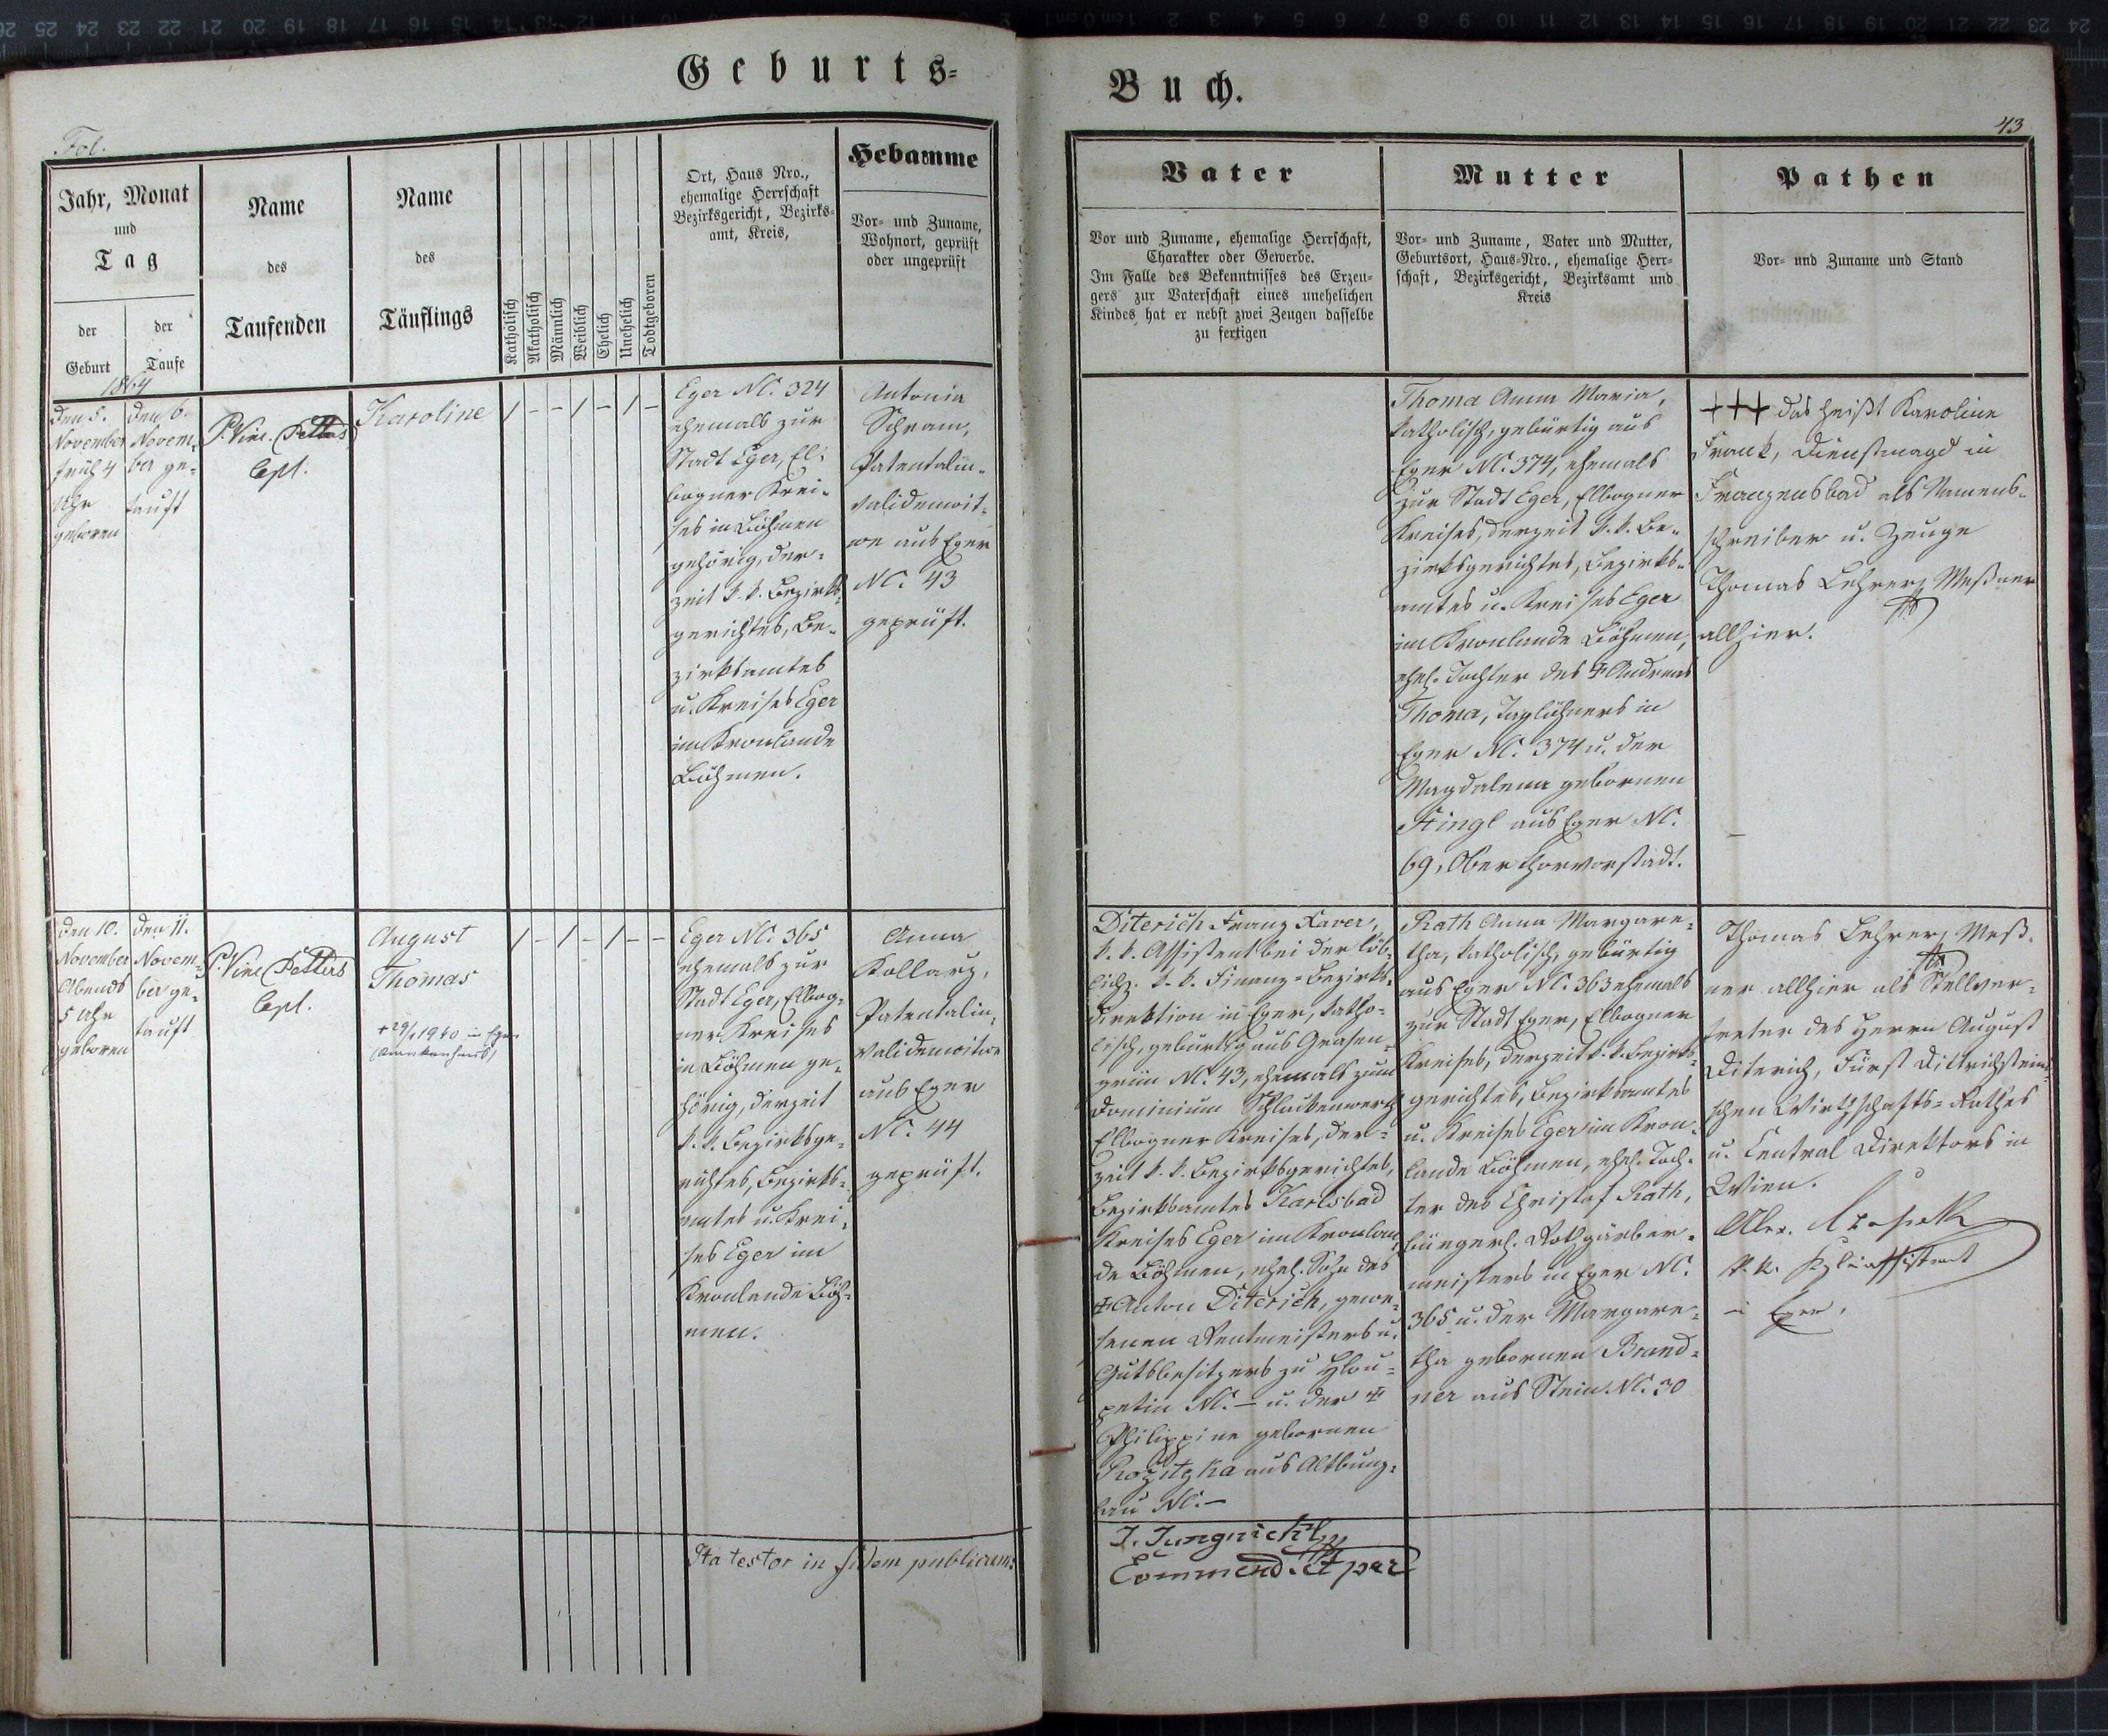 Geburts=
Buch.
Fol.
43
Jahr, Monat
und
Tag
der
Geburt
der
Taufe
Name
des
Taufenden
Name
des
Täuflings
Katholisch
Akatholisch
Männlich
Weiblich
Ehelich
Unehelich
Todtgeboren
Ort, Haus Nro.,
ehemalige Herrschaft
Bezirksgericht, Bezirks=
amt, Kreis,
Hebamme
Vor= und Zuname,
Wohnort, geprüft
oder ungeprüft
Vater
Vor und Zuname, ehemalige Herrschaft,
Charakter oder Gewerbe.
Im Falle des Bekenntnisses des Erzeu=
gers zur Vaterschaft eines unehelichen
Kindes hat er nebst zwei Zeugen dasselbe
zu fertigen
Mutter
Vor= und Zuname, Vater und Mutter,
Geburtsort, Haus=Nro., ehemalige Herr=
schaft, Bezirksgericht, Bezirksamt und
Kreis
Pathen
Vor= und Zuname und Stand
1864
den 5.
November
früh 4
Uhr
geboren
den 6.
Novem=
ber ge=
tauft
P. Vinc. Petters
Cpl.
Karoline
/ - - / - / -
Eger NC. 324
ehemals zur
Stadt Eger, El=
bogner Krei=
ses in Böhmen
gehörig, der=
zeit k. k. Bezirks=
gerichtes, Be=
zirksamtes
u. Kreises Eger
im Kronlande
Böhmen.
Antonia
Schram,
Patentalin=
validenwit=
we aus Eger
NC. 43
geprüft.
Thoma Anna Maria,
katholisch, gebürtig aus
Eger NC. 374, ehemals
zur Stadt Eger, Elbogner
Kreises, derzeit k. k. Be=
zirksgerichtes, Bezirks=
amtes u. Kreises Eger
im Kronlande Böhmen,
ehel. Tochter des † Andreas
Thoma, Taglöhners in
Eger NC. 374 u. der
Magdalena gebornen
Stingl aus Eger NC.
69, Oberthorvorstadt.
+++ das heißt Karoline
Frank, Dienstmagd in
Franzensbad als Namens=
schreiber u. Zeuge
Thomas Lehrer, Meßner
allhier.
den 10.
November
Abends
5 Uhr
geboren
den 11.
Novem=
ber ge=
tauft
P. Vinc Petters
Cpl.
August
Thomas
1940 in Eger
(Krankenhaus)
/ - / - / - -
Eger NC. 365
ehemals zur
Stadt Eger, Elbog=
ner Kreises
in Böhmen ge=
hörig, derzeit
k. k. Bezirksge=
richtes, Bezirks=
amtes u. Krei=
ses Eger im
Kronlande Böh=
men.
Anna
Kollarz,
Patentalin=
validenwitwe
aus Eger
NC. 44
geprüft.
Diterich Franz Xaver,
k. k. Assistent bei der löb=
lich. k. k. Finanz=Bezirks=
direktion in Eger, katho=
lisch, gebürtig aus Grasen=
grün NC. 43, ehemals zum
Dominium Schlackenwerth
Elbogner Kreises, der=
zeit k. k. Bezirksgerichtes,
Bezirksamtes Karlsbad
Kreises Eger im Kronlan=
de Böhmen, ehel. Sohn des
† Anton Diterich, gewe=
senen Rentmeisters u.
Gutsbesitzers zu Hlou=
petin NC. — u. der †
Philippine gebornen
Rozitzka aus Altbunz=
lau NC. —
Rath Anna Margare=
tha, katholisch, gebürtig
aus Eger NC. 363 ehemals
zur Stadt Eger, Elbogner
Kreises, derzeit k. k. Bezirks=
gerichtes, Bezirksamtes
u. Kreises Eger im Kron=
lande Böhmen, ehel. Toch=
ter des Christof Rath,
bürgerl. Rothgärber=
meisters in Eger NC.
365 u. der Margare=
tha gebornen Brand=
ner aus Stein NC. 30
Thomas Lehrer, Meß=
ner allhier als Stellver=
treter des Herrn August
Diterich, Fürst Dittrichstein=
schen Wirthschafts=Rathes
u. Central Direktors in
Wien.
k. k.
in Eger.
Ita testor in fidem publicam:
J. Jungnickl
Commend. Et par